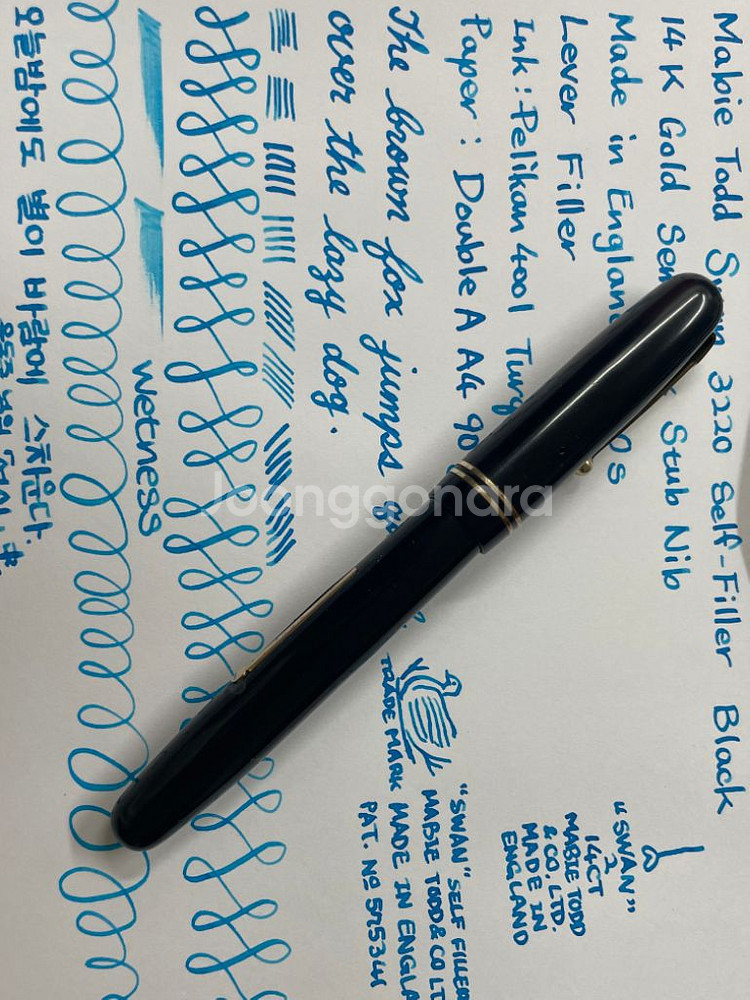 Mabie Todd Swan 3220 Self-Filler Black
14K Gold Stub Nib
Made in England
Lever Filler
Ink: Pelikan 4001
Paper: Double A A4 90
The brown fox jumps
over the lazy dog.
wetness
오늘밤에도 별이 바람에 스치운다.
"SWAN"
2
14CT
MABIE TODD
& CO. LTD.
MADE IN
ENGLAND
TRADE MARK
"SWAN" SELF FILLER
MABIE TODD & CO LT
MADE IN ENGLA
PAT. No
Joonggonara